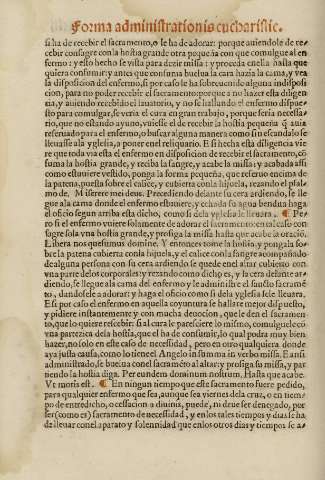 Forma administrationis eucharistie.
si ha de recebir el sacramento, o le ha de adorar: porque auiendole de re-
cebir consagre con la hostia grande otra pequeña con que comulgue al en
fermo: y esto hecho se vista para dezir missa: y proceda en ella hasta que
quiera consumir: y antes que consuma buelua la cara hazia la cama, y vea
la disposicion del enfermo, si por caso le ha sobreuenido alguna indisposi
cion, para no poder recebir el sacramento: porque a no hazer esta diligen-
cia, y auiendo recebido el lauatorio, y no se hallando el enfermo dispue-
sto para comulgar, se veria el cura en gran trabajo, porque seria necessa-
rio, que no estando ayuno, vuiesse de recebir la hostia pequeña q̃ auia
reseruado para el enfermo, o buscar alguna manera como sin escandalo se
lleuasse ala yglesia, a poner en el reliquario. E si hecha esta diligencia vie
re que toda via esta el enfermo en disposicion de recebir el sacramento, cõ
suma la hostia grande, y reciba la sangre, y acabe la missa: y acabada assi
como estuuiere vestido, ponga la forma pequeña, que reseruo encima de
la patena, puesta sobre el calice, y cubierta con la hijuela, rezando el psal-
mo de. Miserere mei deus. Precediendo delante su cera ardiendo, se lle-
gue ala cama donde el enfermo estuuiere, y echada su agua bendita haga
el oficio segun arriba esta dicho, como si dela yglesia le lleuara. ¶ Pe-
ro si el enfermo vuiere solamente de adorar el sacramento: en tal caso con
sagre sola vna hostia grande, y prosiga la missa hasta que acabe la oracion
Libera nos quesumus domine. Y entonces tome la hostia, y pongala so-
bre la patena cubierta con la hijuela, y el calice con la sangre acompañado
de alguna persona con su cera ardiendo se quede en el altar cubierto con
vna parte delos corporales: y rezando como dicho es, y la cera delante ar-
diendo, se llegue ala cama del enfermo y le administre el sancto sacramẽ
to, dandosele a adorar: y haga el oficio como si dela yglesia se le lleuara.
E si por caso el enfermo en aquella coyuntura se hallare mejor dispuesto,
y pidiere instantemente y con mucha deuocion, que le den el sacramen-
to, que lo quiere recebir: si al cura le paresciere lo mismo, comulguele cõ
vna partezica dela hostia, que el ha de consumir, lo qual podra muy bien
hazer, no solo en este caso de necessidad, pero en otro qualquiera donde
aya justa causa, como lo tiene el Angelo in summa in verbo missa. E ansi
administrado, se buelua con el sacramẽto al altar: y prosiga su missa, y par
tiendo la hostia diga. Per eundem dominum nostrum. Hasta que acabe.
Vt moris est. ¶ En ningun tiempo que este sacramento fuere pedido,
para qualquier enfermo que sea, aunque sea viernes dela cruz, o en tiem-
po de entredicho, o cessacion a diuinis, puede, ni deue ser denegado, por
ser (como es) sacramento de necessidad, y en los tales tiempos y dias se ha
de lleuar con el aparato y solennidad que en los otros dias y tiempos se a-